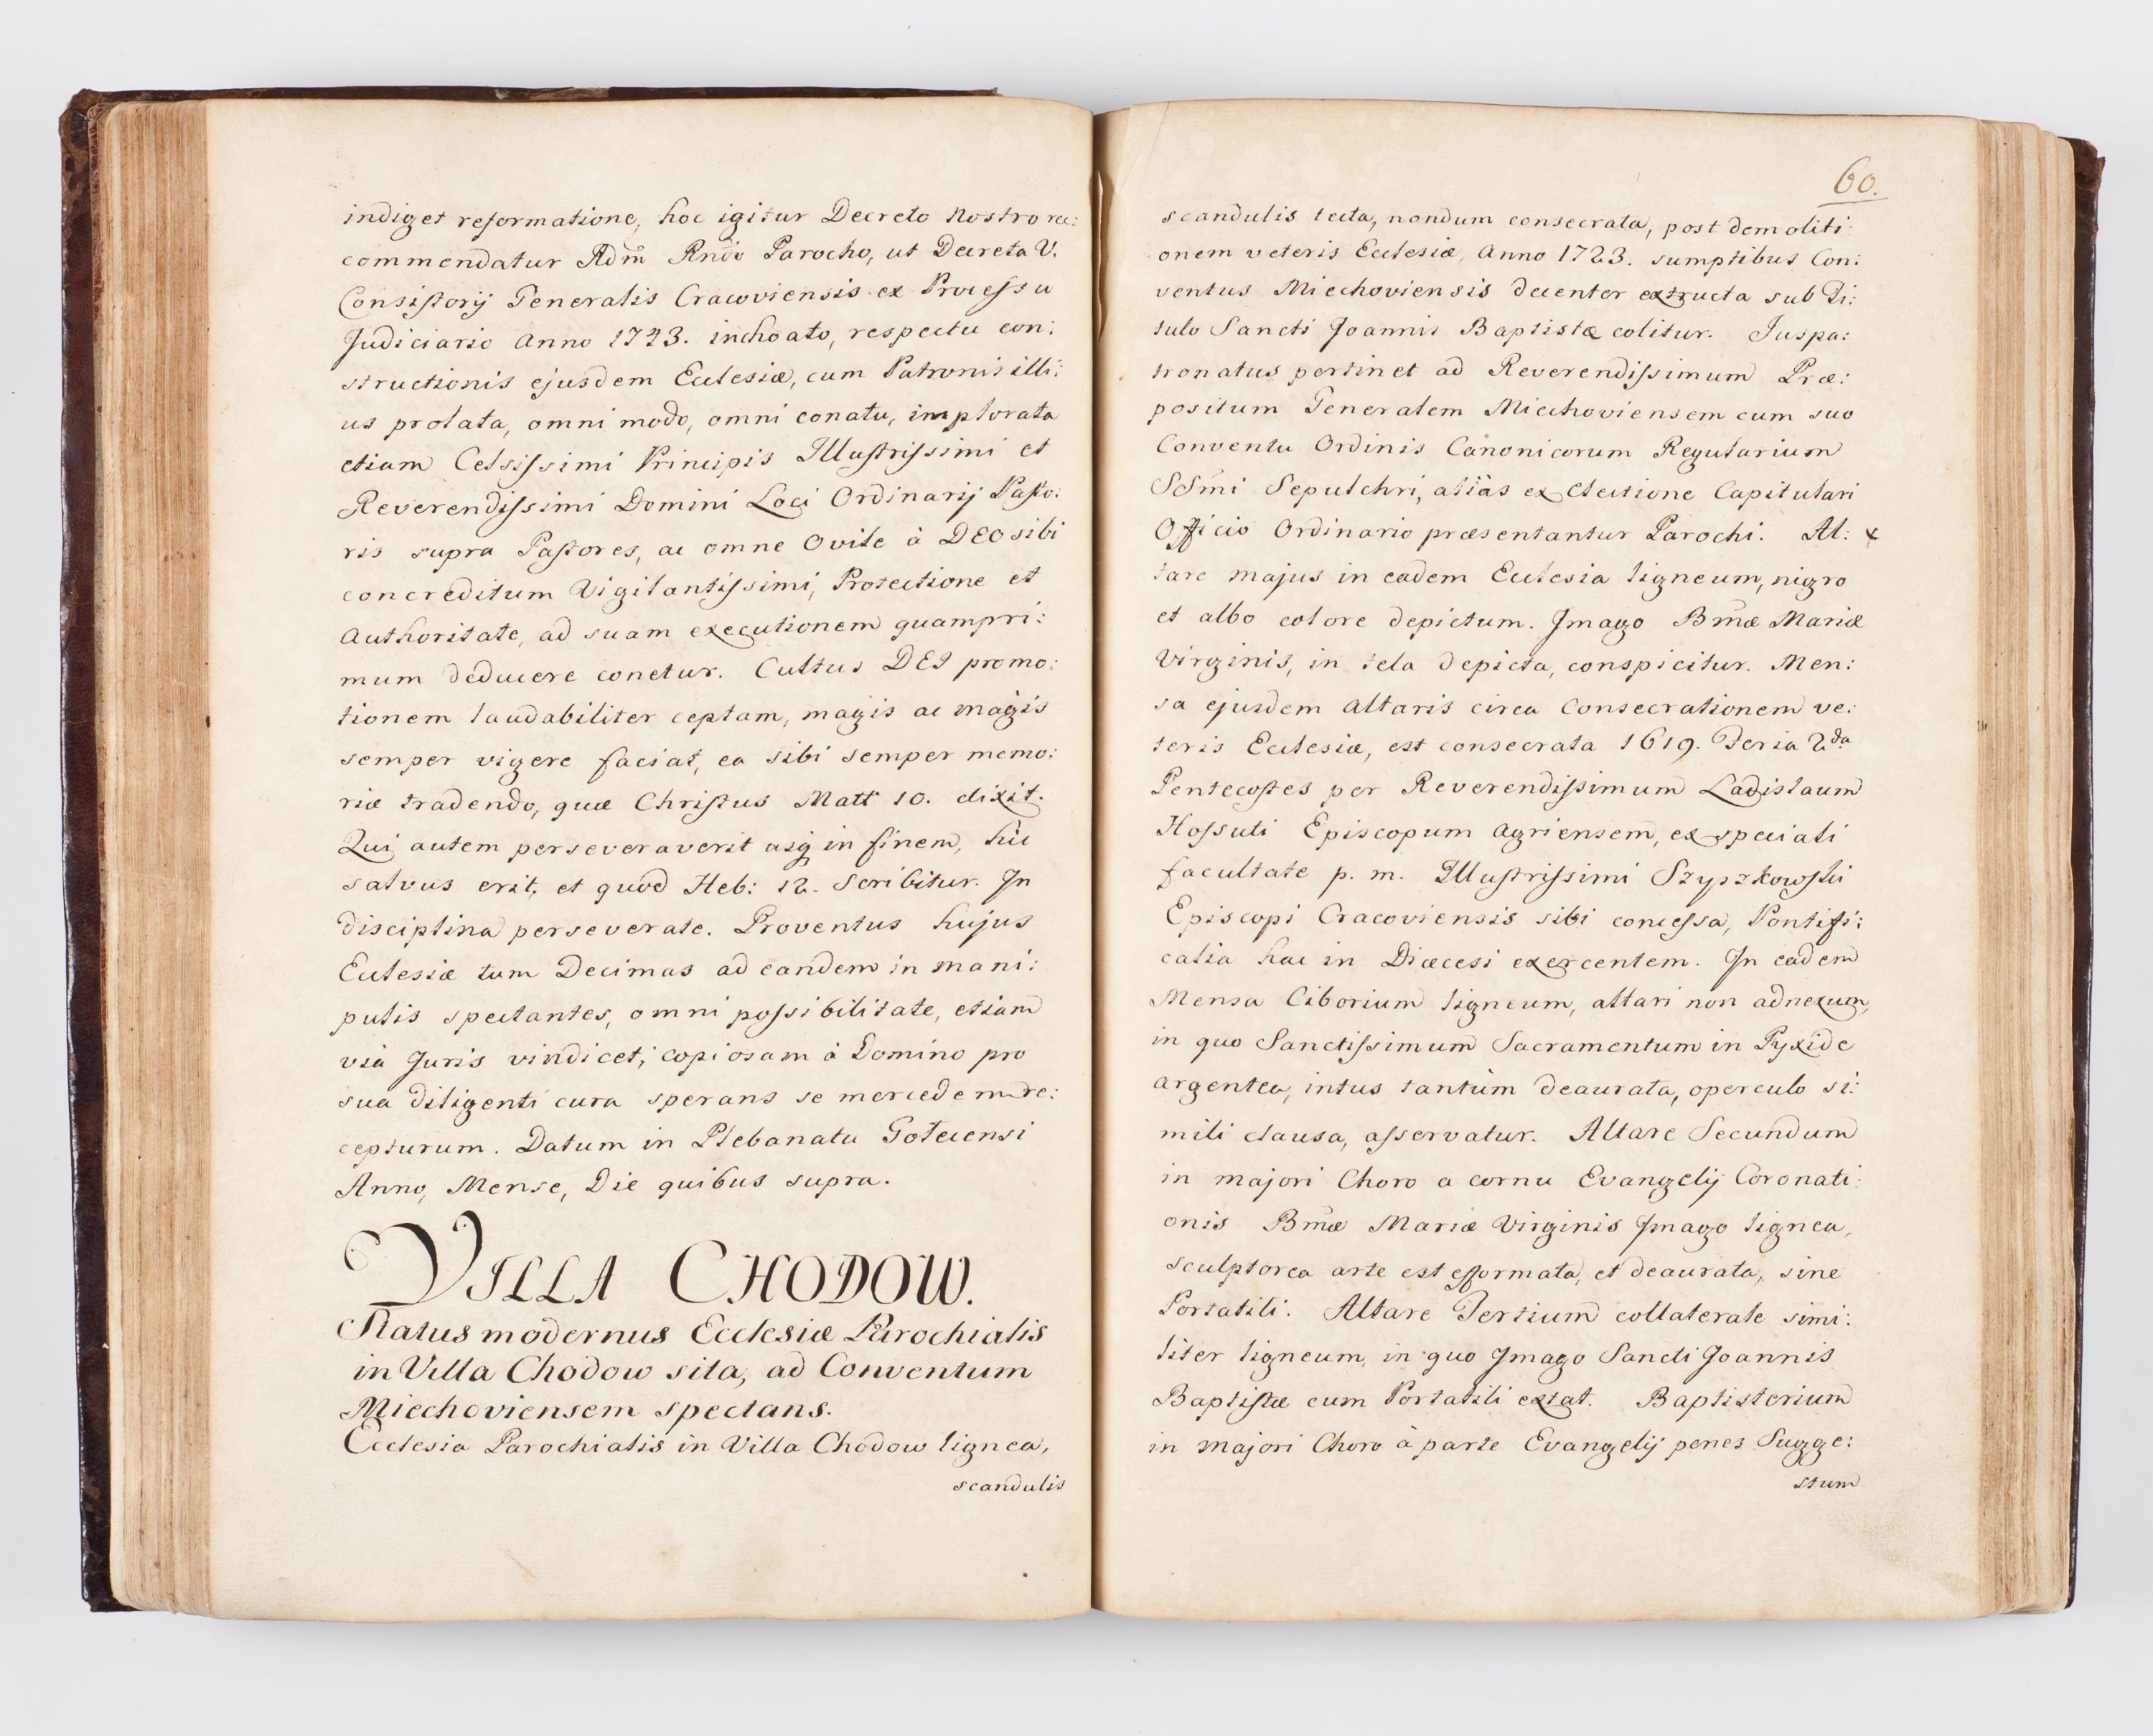 indiget reformatione, hoc igitur Decreto Nostro rec:
commendatur Adm̄ Rndo Parocho, ut Decreta V.
Consistorij Generalis Cracoviensis ex Processu
Judiciario Anno 1743. inchoato, respectu con:
structionis ejusdem Ecclesiæ, cum Patronis illi:
us prolata, omni modo, omni conatu, implorata
etiam Celsissimi Principis Illustrissimi et
Reverendissimi Domini Loci Ordinarij Pasto:
ris supra Pastores, ac omne Ovile à DEO sibi
concreditum Vigilantissimi, Protectione et
Authoritate, ad suam executionem quampri:
mum deducere conetur. Cultus DEI promo:
tionem laudabiliter ceptam, magis ac magis
semper vigere faciat, ea sibi semper memo:
riæ tradendo, quæ Christus Matt 10. dixit.
Qui autem perseveraverit usq in finem, hic
salvus erit, et quod Heb: 12. Scribitur. In
disciplina perseverate. Proventus hujus
Ecclesiæ tum Decimas ad eandem in mani:
pulis spectantes, omni possibilitate, etiam
via Juris vindicet; copiosam à Domino pro
sua diligenti cura sperans se mercedem re:
cepturum. Datum in Plebanatu Golecensi
Anno, Mense, Die quibus supra.
VILLA CHODOW.
Status modernus Ecclesiæ Parochialis
in Villa Chodow sita, ad Conventum
Miechoviensem spectans.
Ecclesia Parochialis in Villa Chodow lignea,
scandulis
60.
scandulis tecta, nondum consecrata, post demoliti:
onem veteris Ecclesiæ, Anno 1723. sumptibus Con:
ventus Miechoviensis decenter extructa sub Ti:
tulo Sancti Joannis Baptistæ colitur. Juspa:
tronatus pertinet ad Reverendissimum Præ:
positum Generalem Miechoviensem cum suo
Conventu Ordinis Canonicorum Regularium
SSm̄i Sepulchri, aliàs ex electione Capitulari
Officio Ordinario præsentantur Parochi. Al: x
tare majus in eadem Ecclesia ligneum, nigro
et albo colore depictum. Imago Bm̄æ Mariæ
Virginis, in tela depicta, conspicitur. Men:
sa ejusdem Altaris circa Consecrationem ve:
teris Ecclesiæ, est consecrata 1619. Feria 2da
Pentecostes per Reverendissimum Ladislaum
Hossuti Episcopum Agriensem, ex speciali
facultate p. m. Illustrissimi Szyszkowski
Episcopi Cracoviensis sibi concessa, Pontifi:
calia hac in Diæcesi exercentem. In eadem
Mensa Ciborium ligneum, altari non adnexum,
in quo Sanctissimum Sacramentum in Pyxide
argentea, intus tantùm deaurata, operculo si:
mili clausa, asservatur. Altare Secundum
in majori Choro a cornu Evangelij Coronati:
onis Bm̄æ Mariæ Virginis Imago lignea,
sculptorea arte est efformata, et deaurata, sine
Portatili. Altare Tertium collaterale simi:
liter ligneum, in quo Imago Sancti Joannis
Baptistæ cum Portatili extat. Baptisterium
in majori Choro à parte Evangelij penes Sugge:
stum